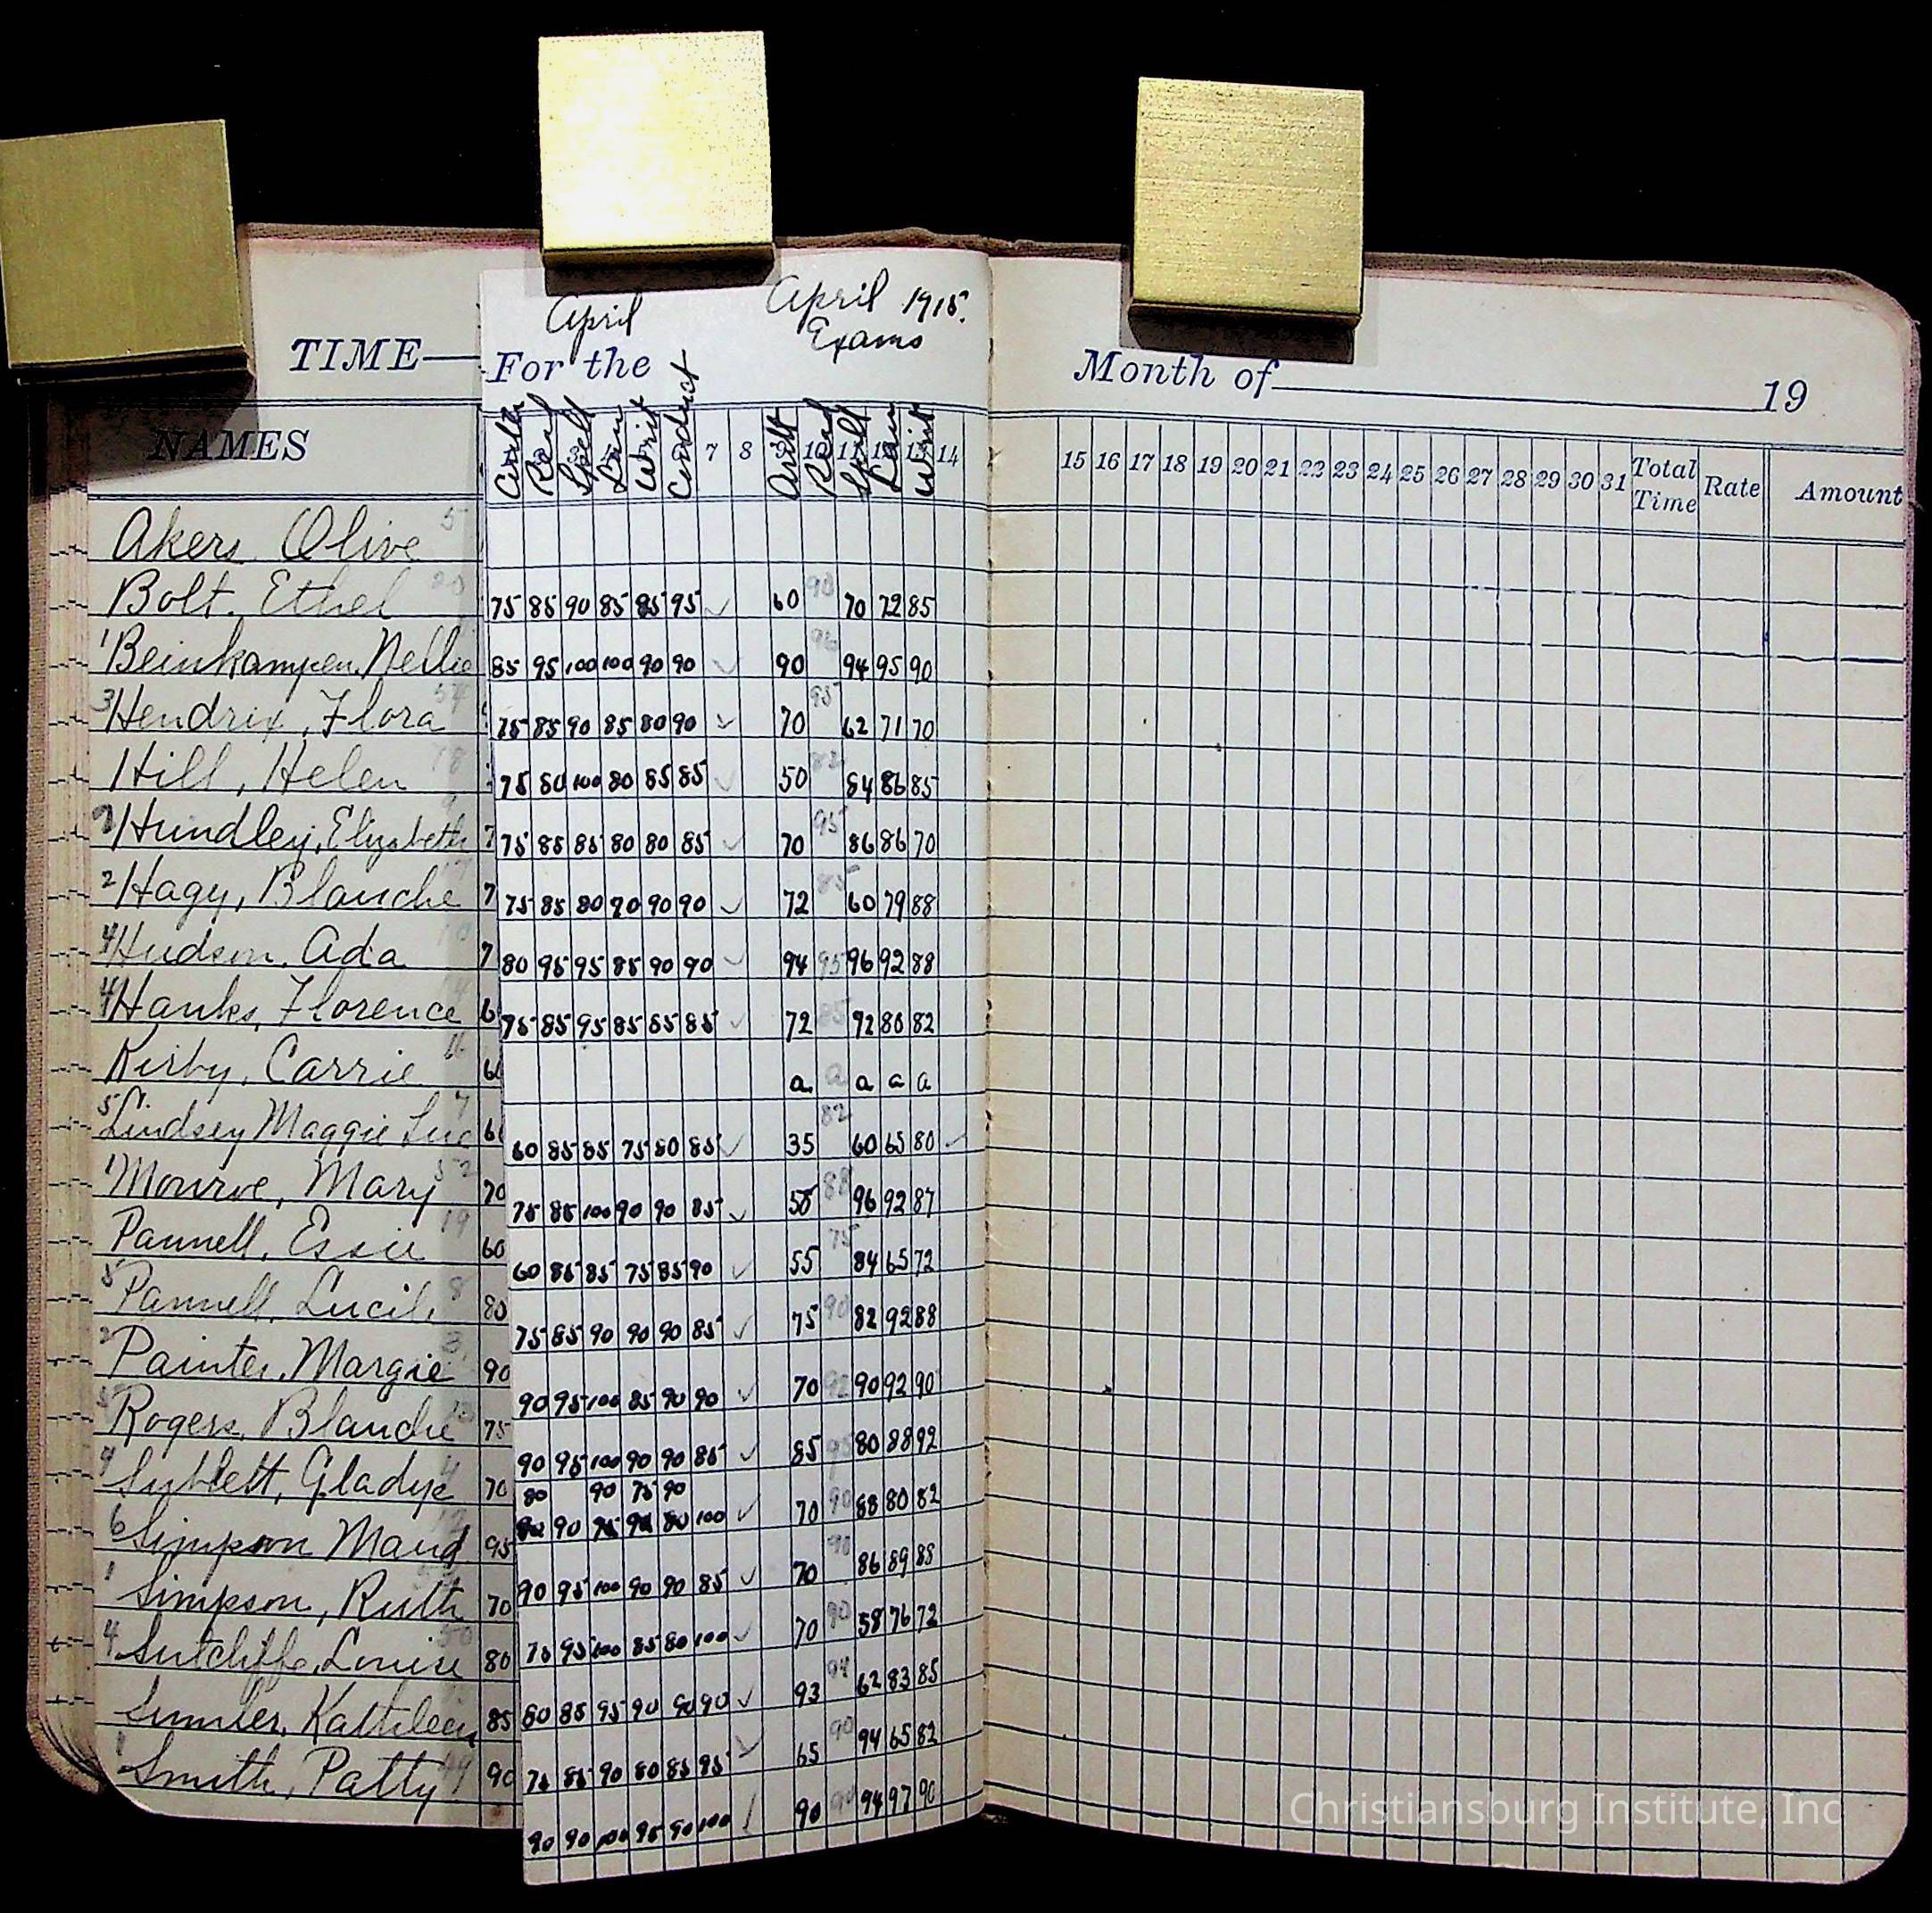 April April 1915.
Exams
TIME— For the Month of 19
NAMES Read Spell Writ Conduct 7 8 Arith Read Spell Writ 14 15 16 17 18 19 20 21 22 23 24 25 26 27 28 29 30 31 Total Time Rate Amount
Akers, Olive 5
Bolt. Ethel 75 85 90 85 85 95 ✓ 60 90 70 72 85
1 Beinkampen. Nellie 85 95 100 100 90 90 ✓ 90 94 95 90
3 Hendrix, Flora 75 85 90 85 80 90 ✓ 70 95 62 71 70
Hill, Helen 75 80 100 80 85 85 ✓ 50 82 84 86 85
Hundley, Elizabeth 7 75 85 85 80 80 85 ✓ 70 95 86 86 70
2 Hagy, Blanche 7 75 85 80 90 90 90 ✓ 72 85 60 79 88
4 Hudson, Ada 7 80 95 95 85 90 90 ✓ 94 95 96 92 88
4 Hanks, Florence 6 75 85 95 85 85 85 ✓ 72 85 92 80 82
Kirby, Carrie 16 a a a a a
5 Lindsey Maggie Sue 7 60 85 85 75 80 85 ✓ 35 82 60 65 80 ✓
1 Monroe, Mary 52 70 75 85 100 90 90 85 ✓ 88 96 92 87
Pannell, Essie 19 60 60 85 85 75 85 90 ✓ 55 75 84 65 72
5 Pannell, Lucile 8 80 75 85 90 90 90 85 ✓ 75 90 82 92 88
2 Painter, Margie 3 90 90 95 100 85 90 90 ✓ 70 92 90 92 90
5 Rogers, Blanche 75 90 95 100 90 90 85 ✓ 85 95 80 88 92
Sublett, Gladys 70 80 90 75 90
90 100 ✓ 70 90 88 80 82
6 Simpson Maud 95 90 95 100 90 90 85 ✓ 70 90 86 89 88
1 Simpson, Ruth 70 75 95 100 85 80 100 ✓ 70 90 58 76 72
4 Sutcliffe, Louise 80 80 85 95 90 90 90 ✓ 93 94 62 83 85
Sumler, Kathleen 85 75 85 90 80 85 95 ✓ 65 90 94 65 82
1 Smith, Patty 90 90 90 100 95 90 100 ✓ 90 94 97 90
Christiansburg Institute, Inc